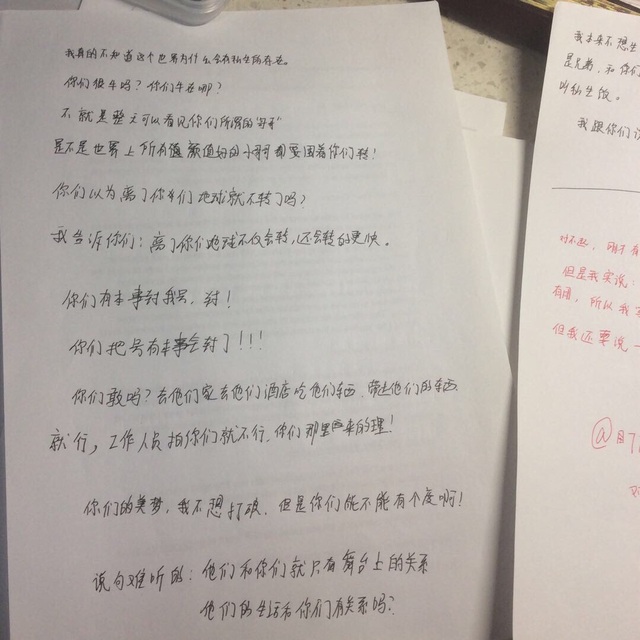 我真的不知道这个世界为什么会有私生的存在。
你们很牛吗？你们牛在哪？
不就是整天可以看见你们所谓的“哥哥”
是不是世界上所有值颜道好的小哥哥都要围着你们转！
你们以为离了你们地球就不转了吗？
我告诉你们：离了你们地球不仅会转，还会转的更快。
你们有本事封我号，封！
你们把号有本事全封了！！！
你们敢吗？去他们家去他们酒店吃他们东西、带走他们的东西
就行，工作人员拍你们就不行，你们那里来的理！
你们的美梦，我不想打破、但是你们能不能有个度啊！
说句难听的：他们和你们就只有舞台上的关系
他们的生活和你们有关系吗？
我本来不想
是兄弟，和你们
听私生饭。
我跟你们
对不起，
但是我实说：
有顾，所以我
但我还要说一
@